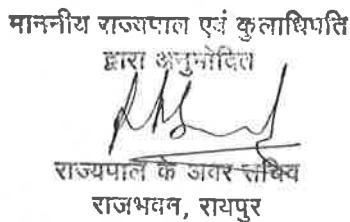 माननीय राज्यपाल एवं कुलाधिपति
द्वारा अनुमोदित
राज्यपाल के अवर सचिव
राजभवन, रायपुर